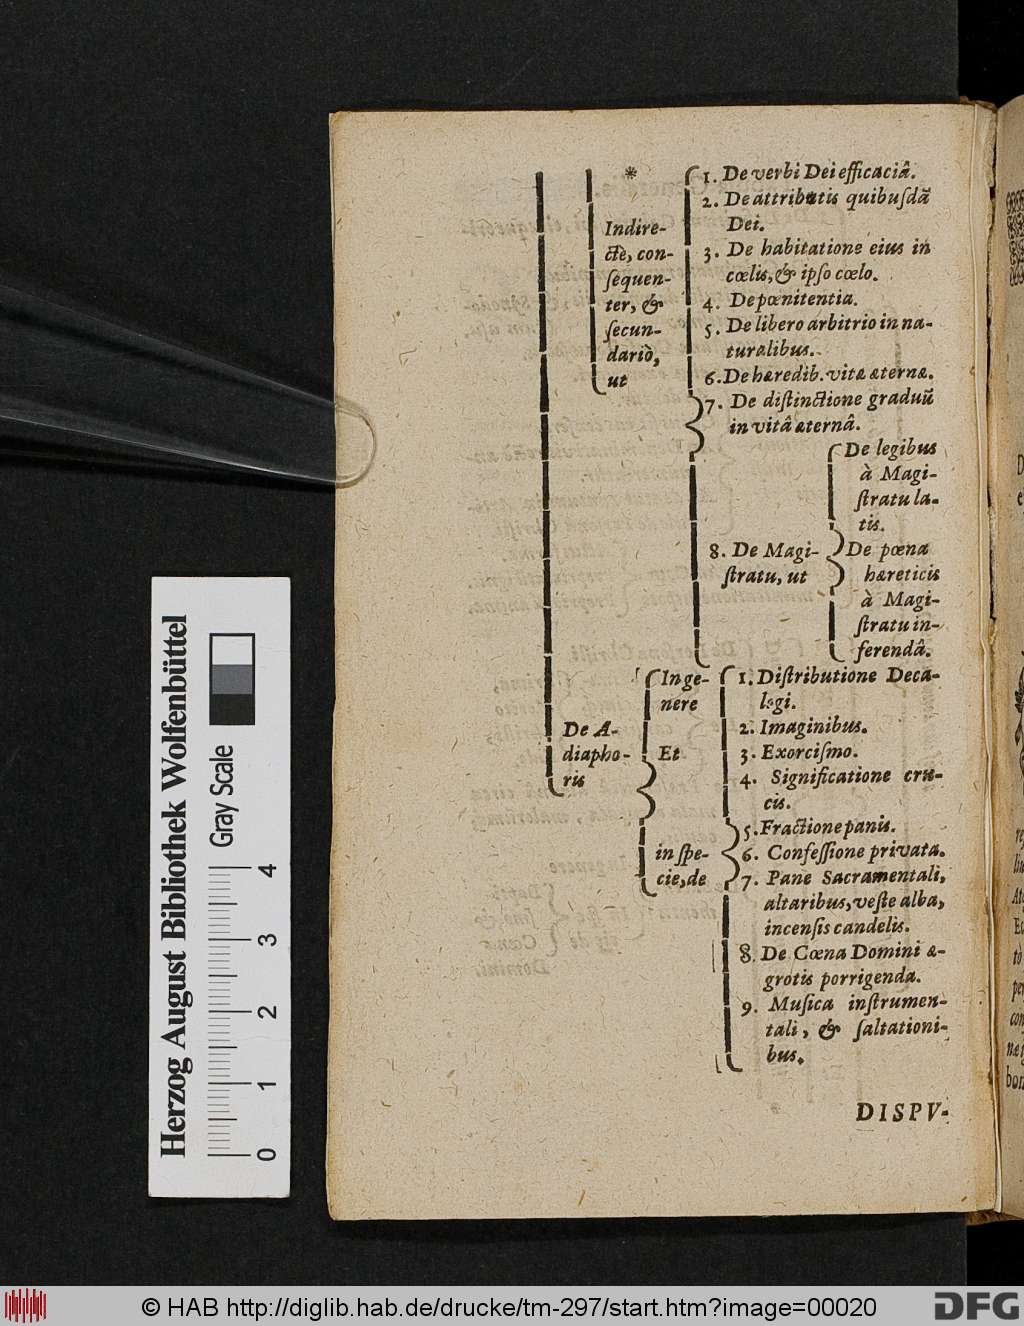 *
Indire-
ctè, con-
ſequen-
ter, &
ſecun-
dariò,
ut
1. De verbi Dei efficaciâ.
2. De attributis quibuſdã
Dei.
3. De habitatione eius in
cœlis, & ipſo cœlo.
4. De pœnitentia.
5. De libero arbitrio in na-
turalibus.
6. De hæredib. vitæ æternæ.
7. De diſtinctione graduũ
in vitâ æternâ.
8. De Magi-
ſtratu, ut
De legibus
à Magi-
ſtratu la-
tis.
De pœna
hæreticis
à Magi-
ſtratu in-
ferendâ.
De A-
diapho-
ris
In ge-
nere
Et
in ſpe-
cie, de
1. Diſtributione Deca-
logi.
2. Imaginibus.
3. Exorciſmo.
4. Significatione cru-
cis.
5. Fractione panis.
6. Confeſſione privata.
7. Pane Sacramentali,
altaribus, veſte alba,
incenſis candelis.
8. De Cœna Domini æ-
grotis porrigenda.
9. Muſica inſtrumen-
tali, & ſaltationi-
bus.
DISPV-
Herzog August Bibliothek Wolfenbüttel
Gray Scale
0 1 2 3 4
© HAB http://diglib.hab.de/drucke/tm-297/start.htm?image=00020
DFG